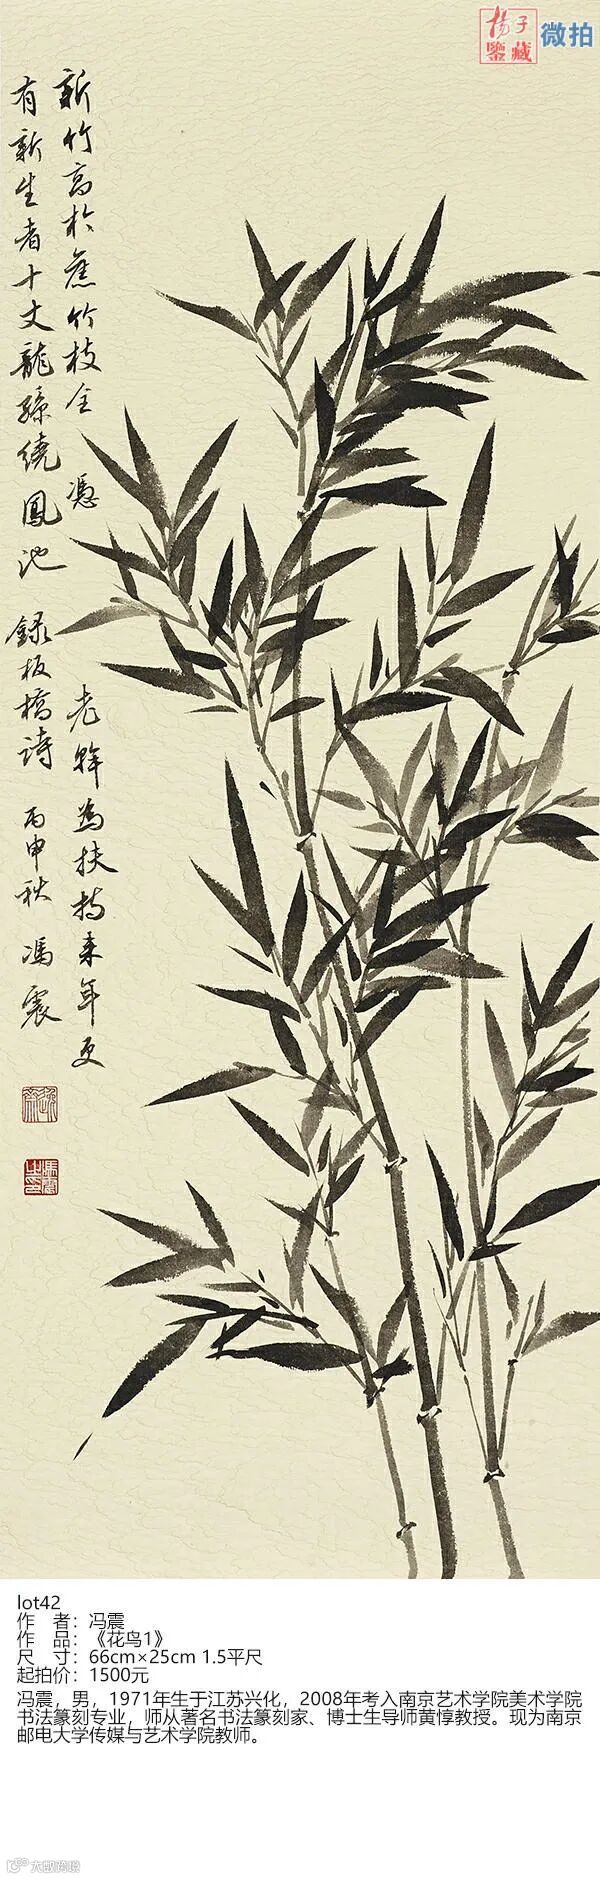 揚子
鑒藏
微拍
新竹高於舊竹枝全憑
老幹為扶持來年更
有新生者十丈龍孫繞鳳池
錄板橋詩 丙申秋 馮震
lot42
作 者：冯震
作 品：《花鸟1》
尺 寸：66cm×25cm 1.5平尺
起拍价：1500元
冯震，男，1971年生于江苏兴化，2008年考入南京艺术学院美术学院
书法篆刻专业，师从著名书法篆刻家、博士生导师黄惇教授。现为南京
邮电大学传媒与艺术学院教师。
大欧跨境